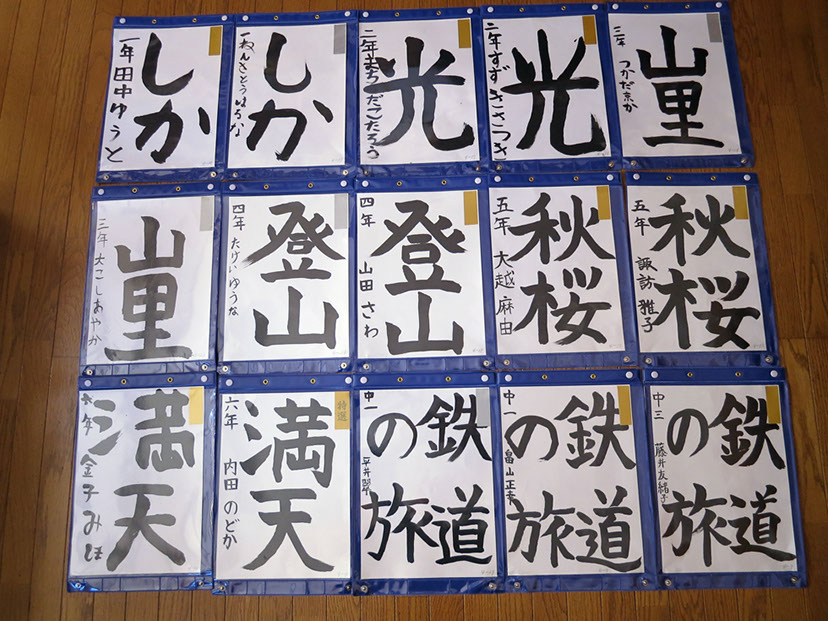 しか
一年田中ゆうと
しか
一ねんさとうはるな
光
二年まちだごたろう
光
二年すずきさつき
山里
三年 つかだ京か
山里
三年 大こしあやか
登山
四年 たけいゆうな
登山
四年 山田 さわ
秋桜
五年 大越 麻由
秋桜
五年 諏訪 雅子
満天
六年 金子 みほ
満天
六年 内田 のどか
特選
鉄道
の旅
中一
鉄道
の旅
中一 畠山正幸
鉄道
の旅
中三 藤井友緒子